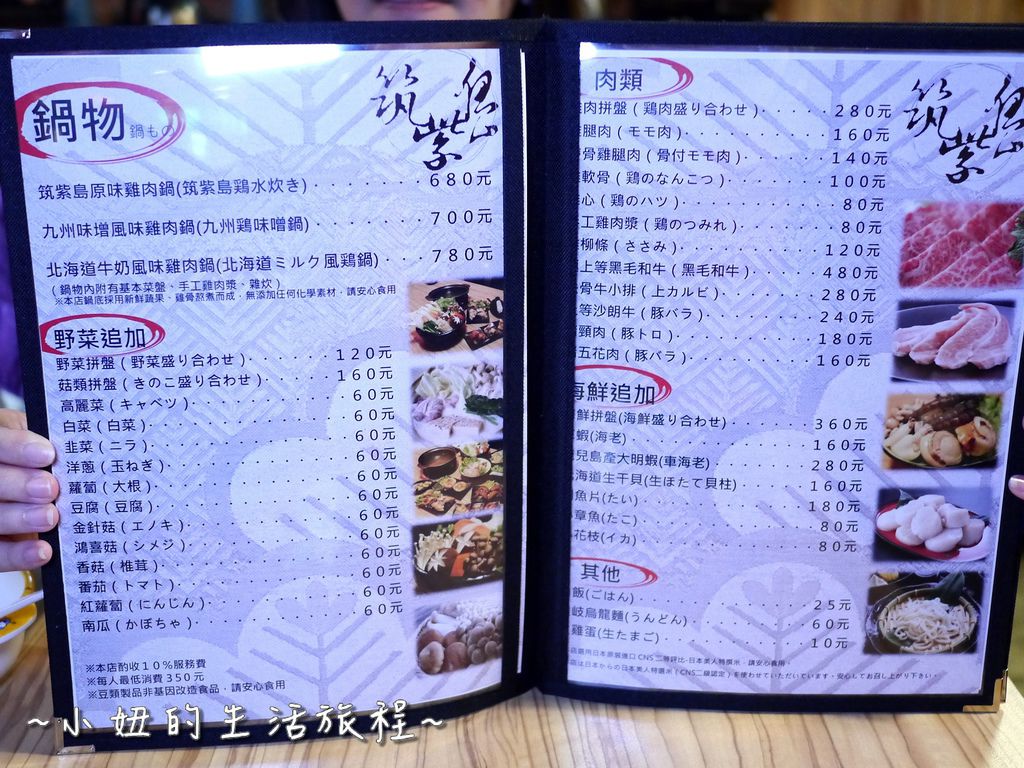 鍋物 鍋もの
筑紫島原味雞肉鍋(筑紫島鶏水炊き)・・・・・・・680元
九州味增風味雞肉鍋(九州鶏味噌鍋)・・・・・・・700元
北海道牛奶風味雞肉鍋(北海道ミルク風鶏鍋)・・・・780元
(鍋物內附有基本菜盤、手工雞肉漿、雜炊)
※本店鍋底採用新鮮蔬果、雞骨熬煮而成,無添加任何化學素材,請安心食用
野菜追加
野菜拼盤(野菜盛り合わせ)・・・・・・120元
菇類拼盤(きのこ盛り合わせ)・・・・・160元
高麗菜(キャベツ)・・・・・・・・・60元
白菜(白菜)・・・・・・・・・・・60元
韭菜(ニラ)・・・・・・・・・・・60元
洋蔥(玉ねぎ)・・・・・・・・・・60元
蘿蔔(大根)・・・・・・・・・・・60元
豆腐(豆腐)・・・・・・・・・・・60元
金針菇(エノキ)・・・・・・・・・60元
鴻喜菇(シメジ)・・・・・・・・・60元
香菇(椎茸)・・・・・・・・・・・60元
番茄(トマト)・・・・・・・・・・60元
紅蘿蔔(にんじん)・・・・・・・・60元
南瓜(かぼちゃ)・・・・・・・・・60元
※本店酌收10%服務費
※每人最低消費350元
※豆類製品非基因改造食品,請安心食用
筑紫
肉類
肉拼盤(鶏肉盛り合わせ)・・・・・280元
腿肉(モモ肉)・・・・・・・・・160元
骨雞腿肉(骨付モモ肉)・・・・・・140元
軟骨(鶏のなんこつ)・・・・・・・100元
心(鶏のハツ)・・・・・・・・・80元
工雞肉漿(鶏のつみれ)・・・・・・80元
柳條(ささみ)・・・・・・・・・120元
上等黑毛和牛(黑毛和牛)・・・・・480元
骨牛小排(上カルビ)・・・・・・・280元
等沙朗牛(豚バラ)・・・・・・・・240元
頸肉(豚トロ)・・・・・・・・・180元
五花肉(豚バラ)・・・・・・・・160元
海鮮追加
鮮拼盤(海鮮盛り合わせ)・・・・・360元
蝦(海老)・・・・・・・・・・・160元
兒島產大明蝦(車海老)・・・・・・280元
海道生干貝(生ほたて貝柱)・・・・・160元
魚片(たい)・・・・・・・・・・180元
章魚(たこ)・・・・・・・・・・80元
花枝(イカ)・・・・・・・・・・80元
其他
飯(ごはん)・・・・・・・・・・25元
岐烏龍麵(うんどん)・・・・・・・60元
雞蛋(生たまご)・・・・・・・・・10元
店選用日本原裝進口CNS二等評比-日本美人特撰米,請安心食用。
店は日本からの日本美人特選米(CNS二級認定)を使わせていただいています。安心してお召し上がり下さい。
筑紫
~小妞的生活旅程~